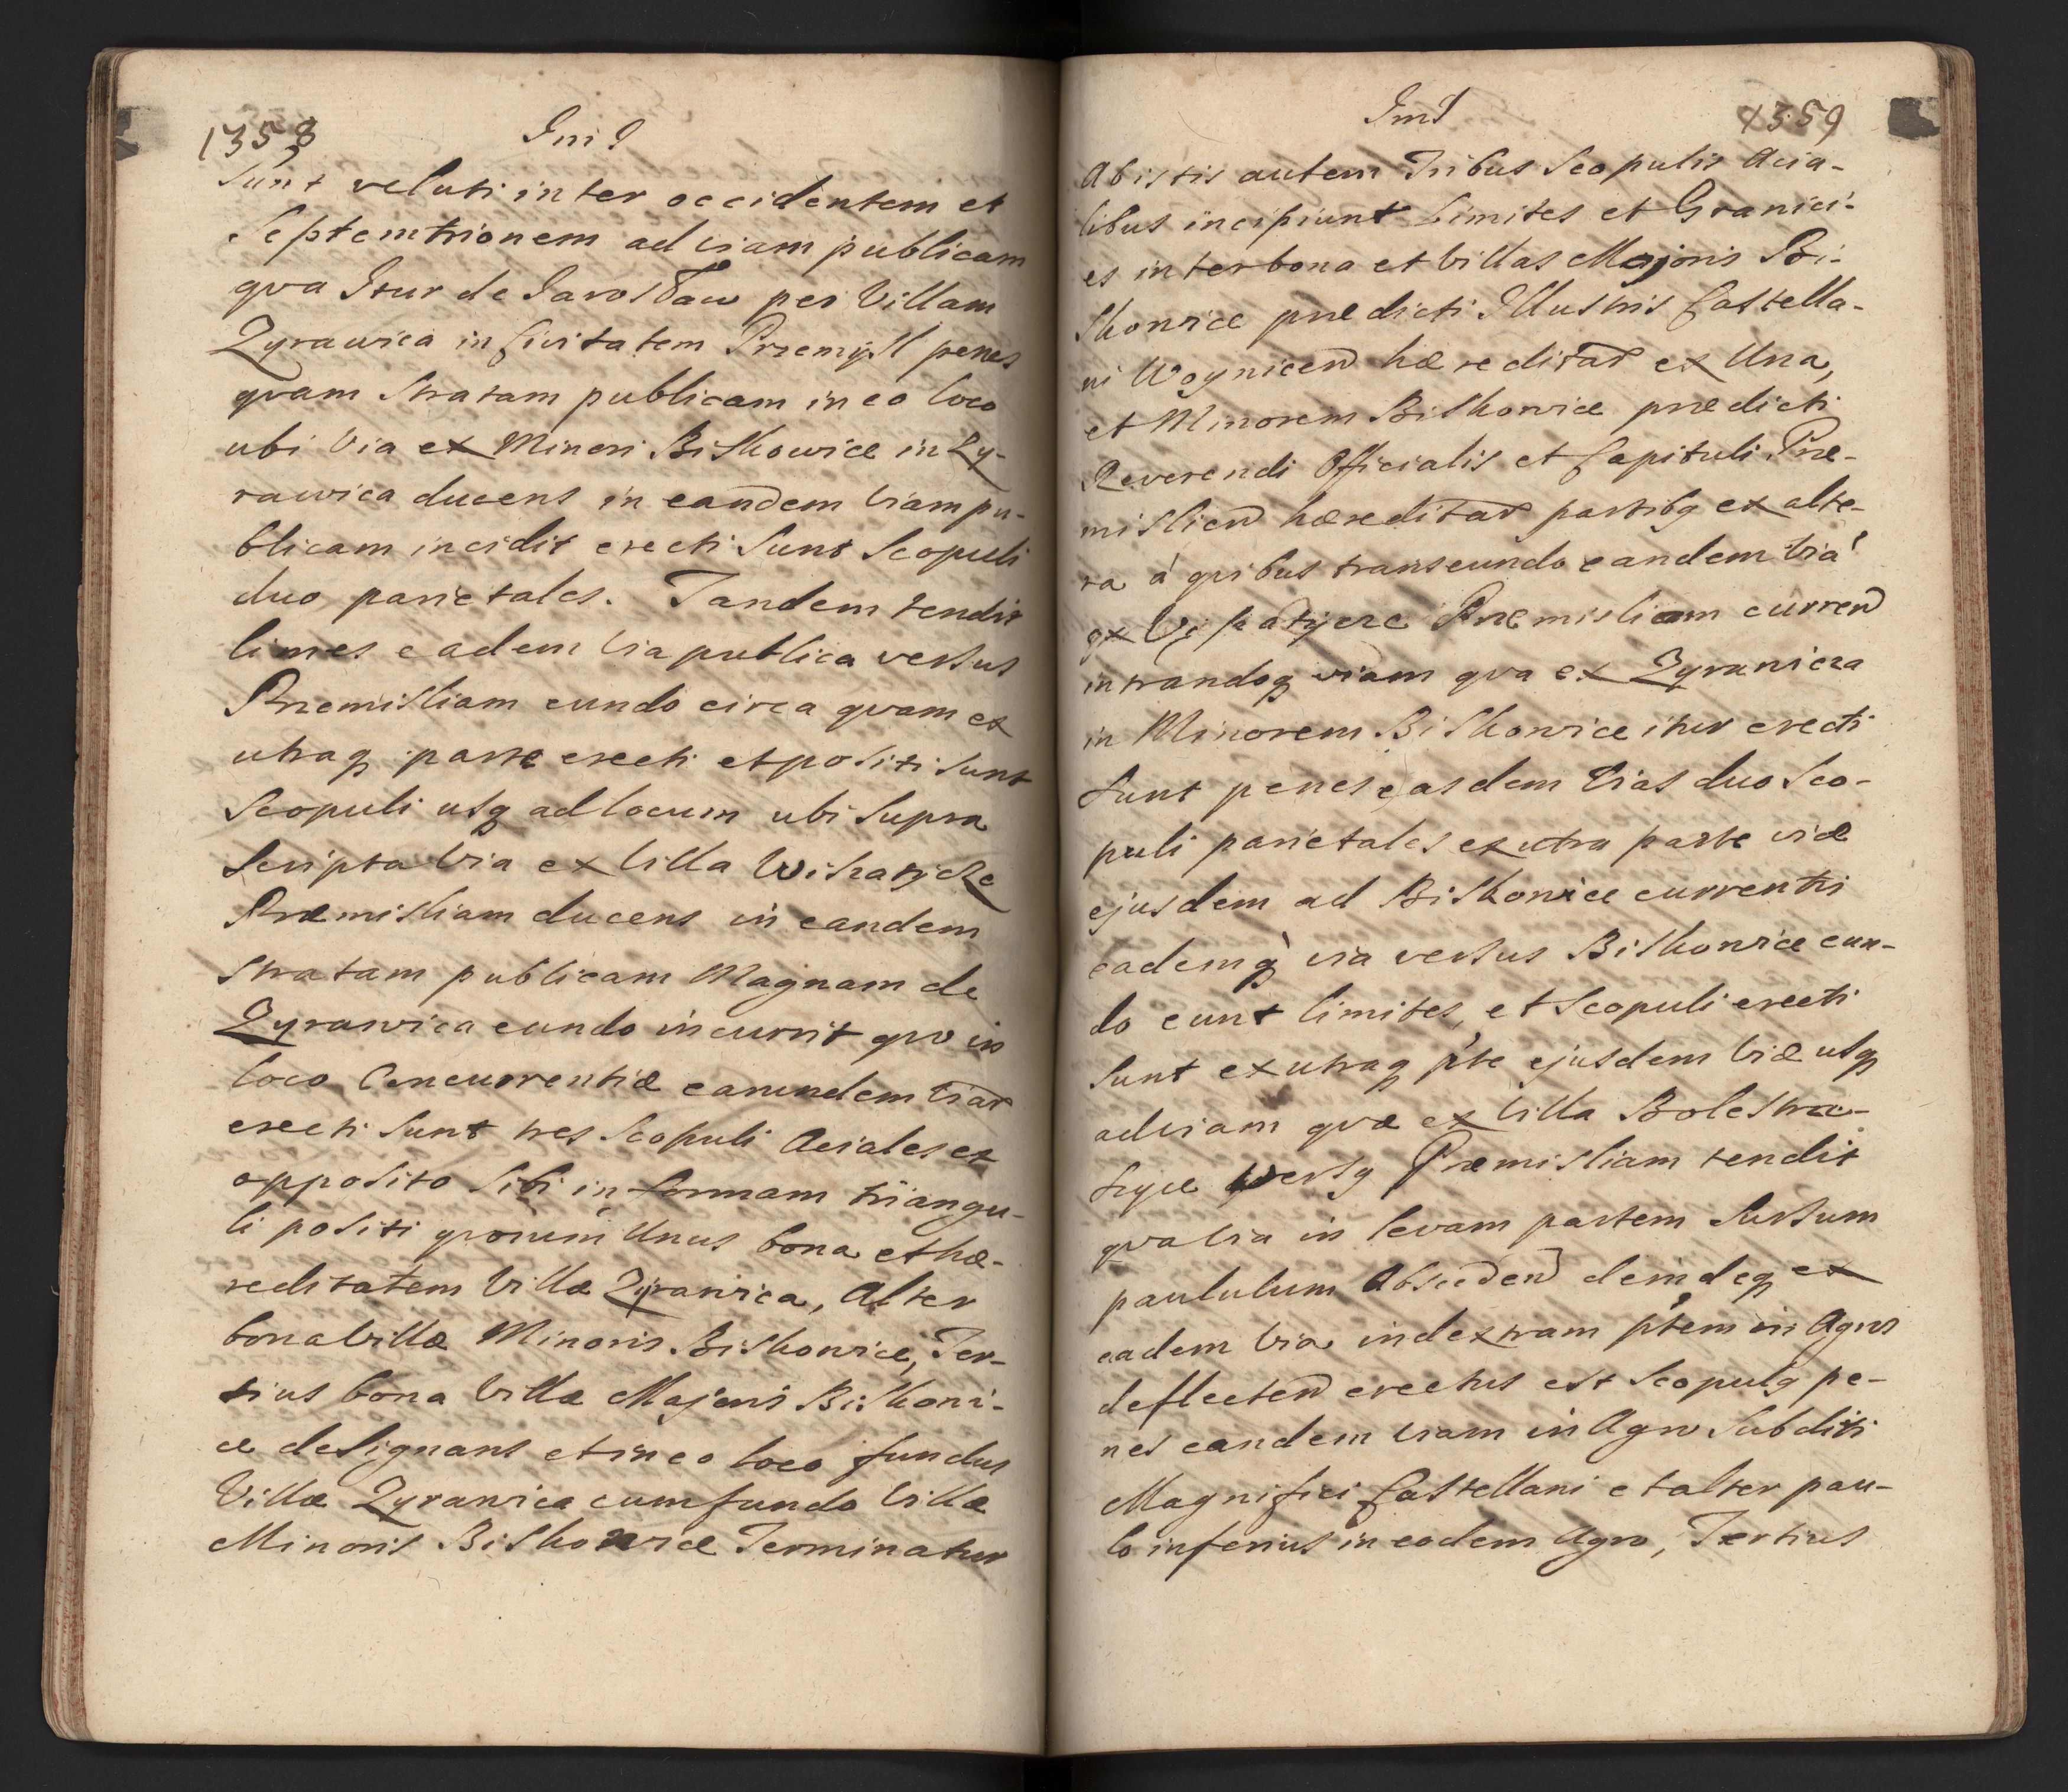 1358
Sunt veluti inter occidentem et
Septemtrionem ad viam publicam
qva Itur de Jaroslaw per Villam
Zyrawica in Civitatem Przemysl penes
qvam Stratam publicam in eo loco
ubi Via ex Minori Biskowice in Zy-
rawica ducens in eandem Viam pu-
blicam incidit erecti Sunt Scopuli
duo parietales. Tandem tendit
limes eadem Via publica versus
Przemisliam eundo circa qvam ex
utraq parte erecti et positi Sunt
Scopuli usq ad locum ubi Supra
Scripta Via ex Villa Wihatycze
Præmisliam ducens in eandem
Stratam publicam Magnam de
Zyrawica eundo incurrit qvo in
loco Concurrentiæ earundem Viar
erecti Sunt tres Scopuli Aciales ex
opposito Sibi in formam triangu-
li positi qvorum Unus bona et hæ-
reditatem Villæ Zyrawica, Alter
bona Villæ Minoris Biskowice, Ter-
tius bona Villæ Majoris Biskowi-
ce designans et in eo loco fundus
Villæ Zyrawica cum fundo Villæ
Minoris Biskowice Terminatur
1359
Ab istis autem Tribus Scopulis Acia-
libus incipiunt Limites et Granici-
es inter bona et Villas Majoris Bi-
skowice prædicti Illustris Castella-
ni Woynicen hæreditar ex Una,
et Minorem Biskowice prædicti
Reverendi Officialis et Capituli Præ-
mislien hæreditar partibq ex alte-
ra á qvibus transeundo eandem Viá
ex Vihatycze Præmisliam curren
intrandoq viam qva ex Zyrawica
in Minorem Biskowice itur erecti
Sunt penes easdem Vias duo Sco-
puli parietales ex utra parte viæ
ejusdem ad Biskowice currentis
eademq via versus Biskowice eun-
do eunt limites, et Scopuli erecti
Sunt ex utraq pte ejusdem Viæ usq
ad viam qvæ ex Villa Bolestra-
szyce versq Præmisliam tendit
qva Via in levam partem Sursum
paululum Absceden deindeq ex
eadem Via in dextram ptem in Agros
deflecten erectus est Scopulq pe-
nes eandem viam in Agro Subditi
Magnifici Castellani et alter pau-
lo inferius in eodem Agro, Tertius